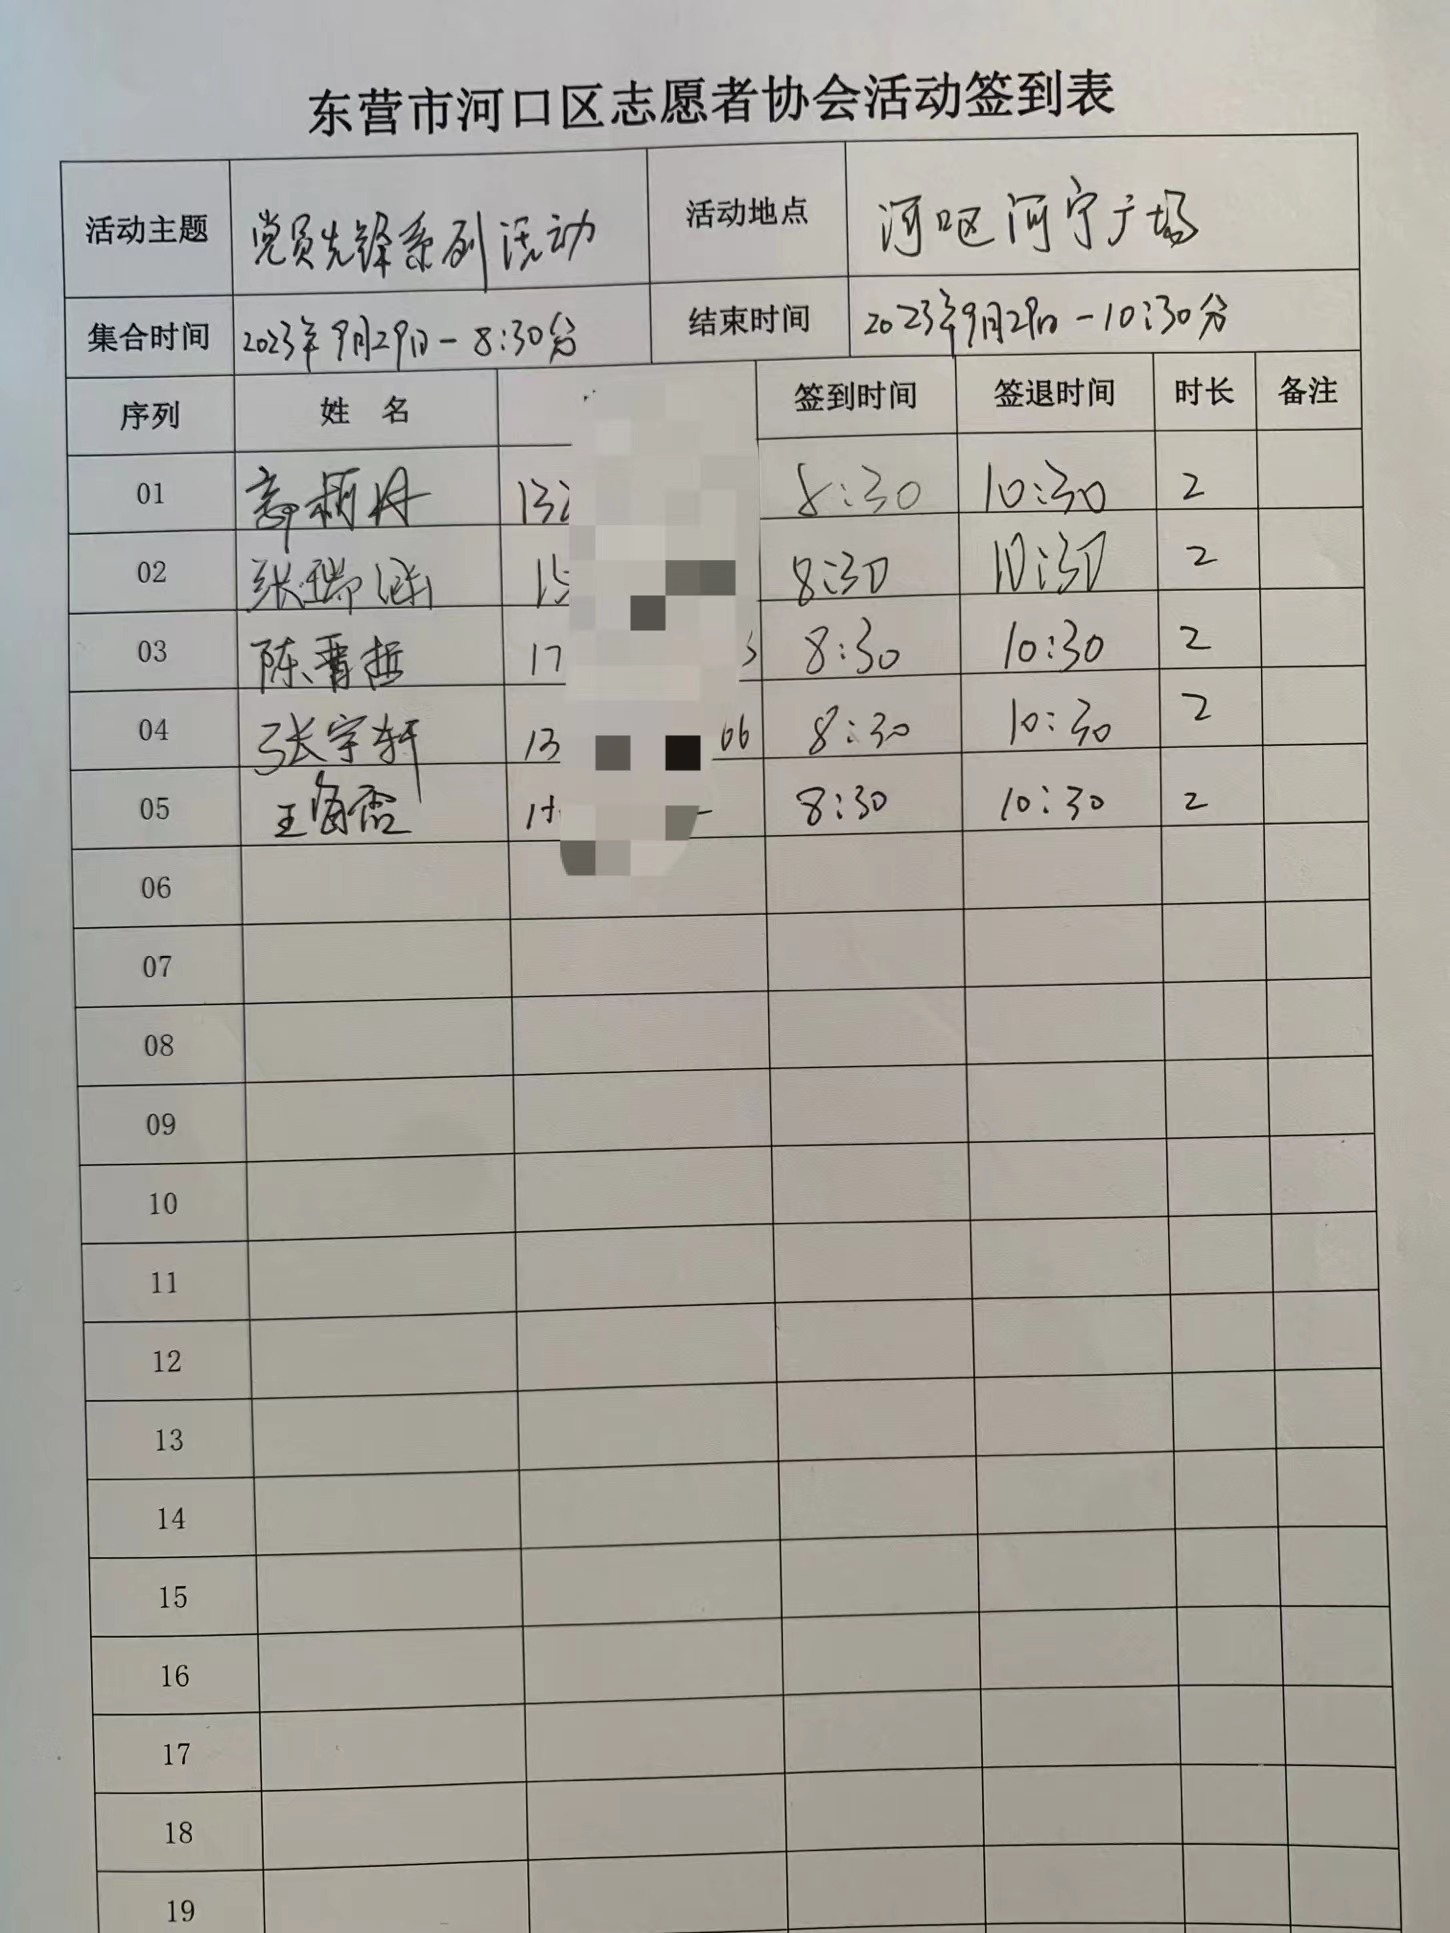 东营市河口区志愿者协会活动签到表
活动主题 党员先锋系列活动 活动地点 河口区河宁广场
集合时间 2023年9月29日-8:30分 结束时间 2023年9月29日-10:30分
序列 姓 名 签到时间 签退时间 时长 备注
01 13 8:30 10:30 2
02 张瑞涵 15 8:30 10:30 2
03 陈晋哲 17 8:30 10:30 2
04 张宇轩 13 06 8:30 10:30 2
05 王海霞 8:30 10:30 2
06
07
08
09
10
11
12
13
14
15
16
17
18
19